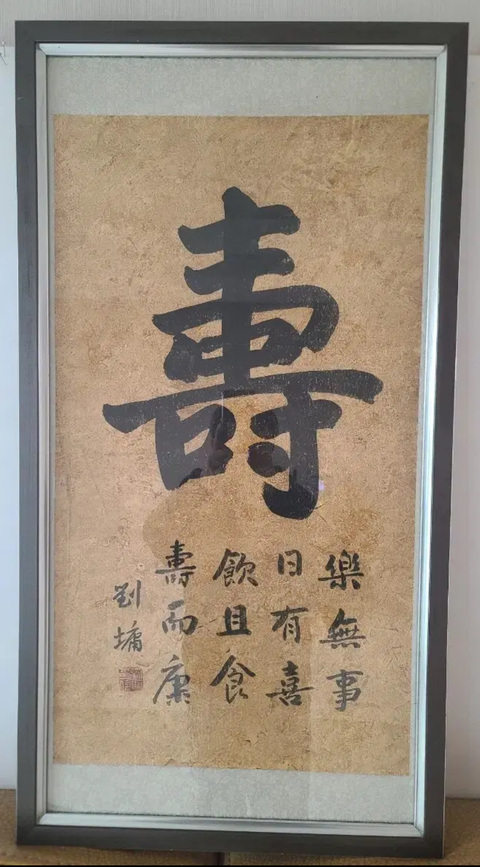 壽
樂無事
日有喜
飲且食
壽而康
劉墉